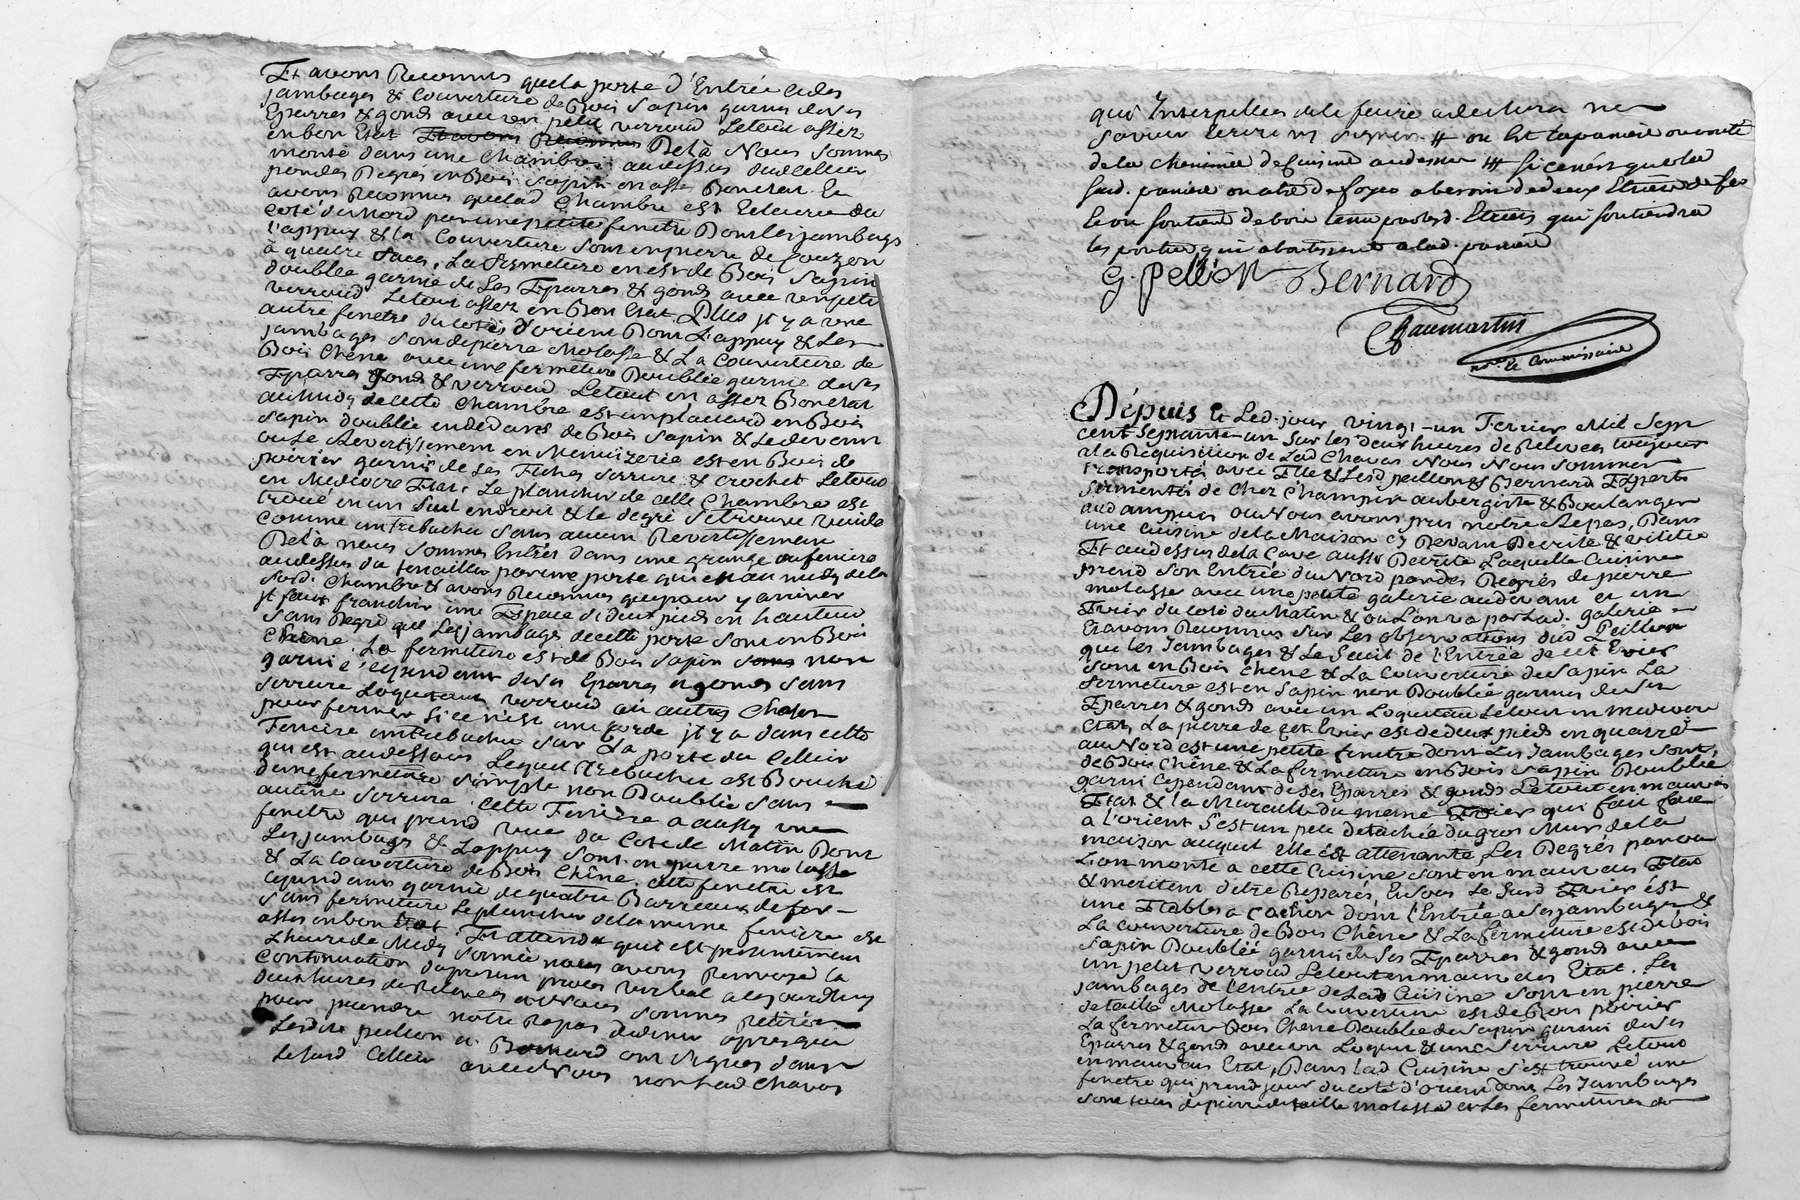 Et avons Reconnus que la porte d'Entrée a des
jambages & couverture de Bois Sapin garnie de ses
Eparres & gonds avec un petit verroud Le tout assez
en bon Etat Et avons Reconnus De là Nous Sommes
monté dans une Chambre au dessus dud cellier
par des Degrés en Bois Sapin en assez Bon etat Et
avons Reconnus que lad Chambre est Eclairée du
coté du Nord par une petite fenetre Dont les jambages
l'appuy & la Couverture Sont en pierre de Couzon
à quatre faces, La fermeture en est de Bois Sapin
doublée garnie de Ses Eparres & gonds avec un petit
verroud Le tout assez en Bon Etat Plus jl y a une
autre fenetre du coté d'orient Dont L'appuy & Les
jambages Sont de pierre Molasse & La Couverture de
Bois Chêne avec une fermeture Doublée garnie de ses
Eparres gonds & verroud Le tout en assez Bon etat
au midy de cette Chambre est un placard en Bois
Sapin doublé en dedans de Bois Sapin & Le devant
ou Le Revertissement en Menuizerie est en Bois de
poirier garnis de Ses Fiches Serrure & Crochet Le tout
en Mediocre Etat, Le plancher de celle Chambre est
troué en un Seul endroit & le degré Se trouve vuide
comme un trebuchu Sans aucun Revertissement
De là nous Sommes Entrés dans une grange ou feniere
au dessus du tenailler par une porte qui est au midy de la
Susd. Chambre & avons Reconnus que pour y arriver
jl faut franchir une Espace de deux pieds en hauteur
Sans Degré que Les jambages de cette porte Sont en Bois
Chêne. La fermeture est de Bois Sapin Sans non
garni Cependant de ses Eparres & gonds Sans
Serrure Loquetaux verroud ou autres Choses
pour fermer Si ce n'est une Corde jl y a dans cette
Feniere un trebuchu Sur La porte du Cellier
qui est au dessous Lequel trebuchu est Bouché
d'une fermeture Simple non Doublée Sans
aucune Serrure. Cette Feniere a aussy une
fenetre qui prend vuë du Coté de Matin Dont
Les jambages & L'appuy Sont en pierre molasse
& La Couverture de Bois Chêne. Cette fenetre est
Cependant garnie de quatre Barreaux de fer
Sans fermeture Le plancher de la meme feniere est
assez en bon Etat. Et attendu qu'il est presentement
L'heure de Midy Sonnée nous avons Renvoyé la
Continuation du present proces verbal a cejourdhuy
deux heures de Relevée et Nous Sommes Retirés
pour prendre notre Repas de diner apres que
Lesdits peillon et Bernard ont Signés dans
Le Susd Cellier avec Nous non Lad Chavas
qui Interpellée de le faire a declaré ne
Savoir Ecrire ni Signer. # ou Est la panniere ou voute
de la cheminée de Cuisine au dessus ## Si ce n'est que la
Susd. panniere ou atre de foyer a besoin de deux Etriers de fer
le soutient de bois Lesd. Etriers qui soutiendra
les poutres qui aboutissent a lad. panniere
G. Pellion Bernard
Chaumartin
nore. Le Commissaire
Dépuis Et Led. jour vingt-un Fevrier Mil Sept
cent Septante-un Sur les deux heures de Relevée toujours
a la Requisition de Lad Chavas Nous Nous Sommes
transportés avec Elle & Lesd peillon & Bernard Experts
Sermentés de Chez Champin aubergiste & Boulanger
aud ampuis ou Nous avons pris notre Repas, Dans
une cuisine de la Maison cy Devant Decrite & visitée
Et au dessus de la Cave aussy Decrite Laquelle Cuisine
prend Son Entrée du Nord par des Degrés de pierre
molasse avec une petite galerie au devant et un
Evier du coté du Matin & ou L'on va par Lad. galerie
Et avons Reconnus Sur Les observations dud Peillon
que les Jambages & Le Seuil de l'Entrée de cet Evier
Sont en Bois Chêne & La Couverture de Sapin La
Fermeture est en Sapin non Doublée garnie de ses
Eparres & gonds avec un Loquetau Le tout en mediocre
Etat, La pierre de cet Evier est de deux pieds en quarret
au Nord est une petite fenetre dont Les Jambages Sont
de Bois Chêne & La fermeture en Bois Sapin Doublée
garnie Cependant de Ses Eparres & gonds Le tout en mauvais
Etat & la Muraille du meme Evier qui fait face
a l'orient S'est un peu detachée du gros Mur de la
maison auquel elle est attenante, Les Degrés par ou
L'on monte a cette Cuisine Sont en mauvais Etat
& meritent d'etre Reparés, En Sous Le Susd Evier est
une Etable a Cochon dont l'Entrée a Ses jambages &
La couverture de Bois Chêne & La fermeture est de bois
Sapin Doublée garnie de Ses Eparres & gonds avec
un petit verroud Le tout en mauvais Etat. Les
jambages de l'Entrée de Lad Cuisine Sont en pierre
de taille Molasse La couverture est de Bois poirier
La fermeture Bois Chêne Doublée de Sapin garnie de ses
Eparres & gonds avec un Loquet & une Serrure Le tout
en mauvais Etat, Dans Lad Cuisine S'est trouvé une
fenetre qui prend jour du coté d'orient dont Les Jambages
Sont tous de pierre de taille molasse et Les fermetures de